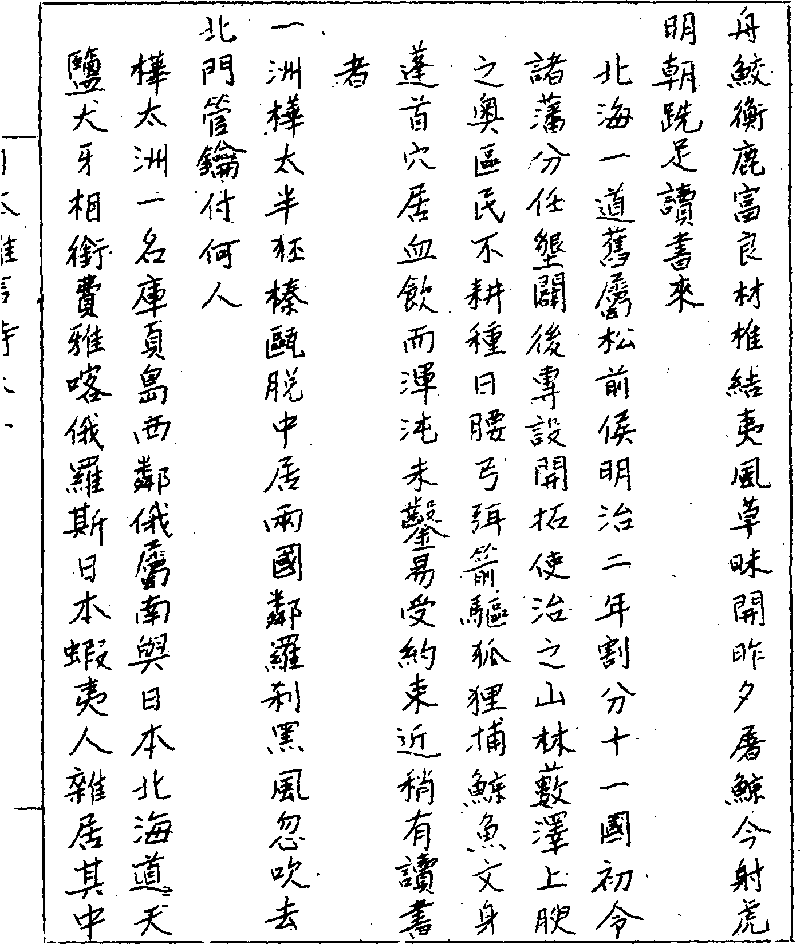 舟鮫衡鹿富良材椎結夷風草昧開昨夕屠鯨今射虎
明朝跣足讀書來
北海一道舊屬松前侯明治二年割分十一國初令
諸藩分任墾闢後專設開拓使治之山林藪澤上腴
之奧區民不耕種日腰弓弭箭驅狐狸捕鯨魚文身
蓬首穴居血飲而渾沌未鑿易受約束近稍有讀書
者
一洲樺太半狉榛甌脱中居兩國鄰羅剎黑風忽吹去
北門管鑰付何人
樺太洲一名庫頁島西鄰俄屬南與日本北海道天
鹽犬牙相銜費雅喀俄羅斯日本蝦夷人雜居其中